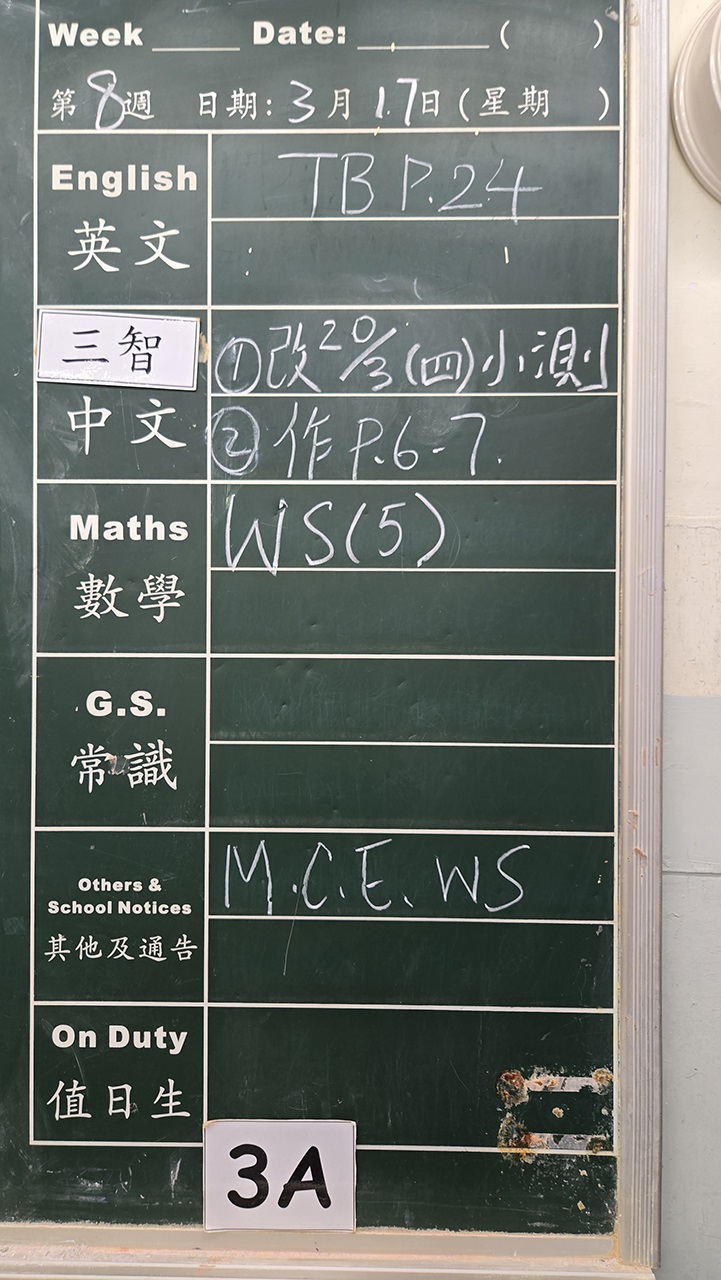 Week ____ Date: ______ ( )
第8週 日期:3月17日(星期 )
English
TB P.24
英文
三智
①改20/3(四)小測
中文
②作P.6-7.
Maths
WS(5)
數學
G.S.
常識
Others &
School Notices
M.C.E. WS
其他及通告
On Duty
值日生
3A